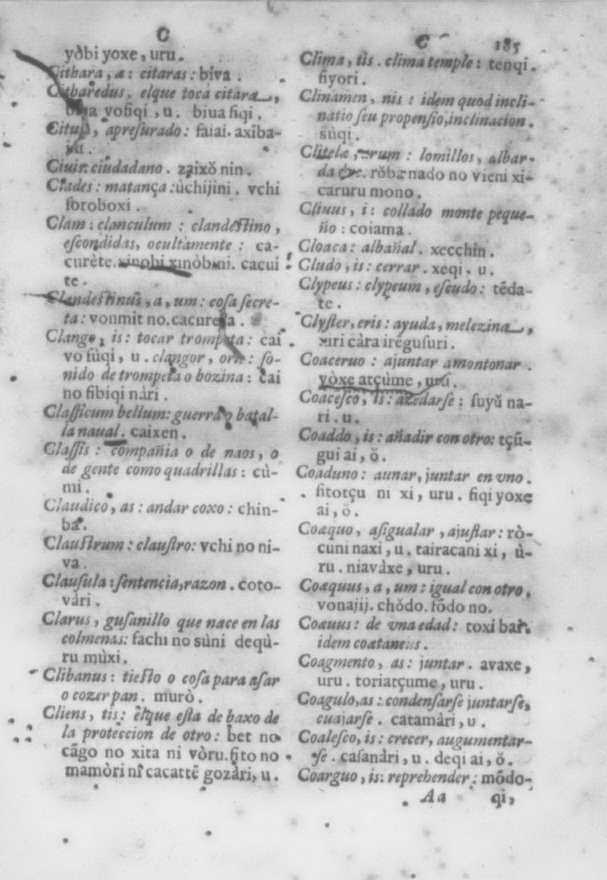 C
yòbi yoxe, uru.
Cithara, a: citaras: biva.
Citharedus, elque toca citara,
biua yofiqi, u. biua fiqi.
Citus, apresurado: faiai. axiba-
Ciuis: ciudadano. zaixǒ nin.
Clades: matança: ùchijini. vchi
foroboxi.
Clam: clanculum: clandestino,
escondidas, ocultamente: ca-
curète. xinobi xinòbini. cacui
te.
Clandestinus, a, um: cosa secre-
ta: vonmit no. cacureta.
Clango, is: tocar trompeta: cai
vo fùqi, u. clangor, oris: so-
nido de trompeta o bozina: cai
no fibiqi nàri.
Classicum bellum: guerra o batal-
la naual. caixen.
Classis: compañia o de naos, o
de gente como quadrillas: cù-
mi.
Claudico, as: andar coxo: chin-
ba.
Claustrum: claustro: vchi no ni-
va.
Clausula: sentencia, razon. coto-
vàri.
Clarus, gusanillo que nace en las
colmenas: fachi no sùni dequ-
ru mùxi.
Clibanus: tiesto o cosa para asar
o cozer pan. murò.
Cliens, tis: elque esta de baxo de
la proteccion de otro: bet no
cãgo no xita ni vòru. fito no
mamòri ni cacattẽ gozàri, u.
C 185
Clima, tis. clima temple: tenqi.
fiyori.
Clinamen, nis: idem quod incli-
natio seu propensio, inclinacion.
sùqi.
Clitelæ, arum: lomillos, albar-
da &c. rǒba nado no vieni xi-
caruru mono.
Cliuus, i: collado monte peque-
ño: coiama.
Cloaca: albañal. xecchin.
Cludo, is: cerrar. xeqi. u.
Clypeus: clypeum, escudo: tẽda-
te.
Clyster, eris: ayuda, melezina,
xiri càra iregusuri.
Coaceruo: ajuntar amontonar.
yòxe atçùme, uru.
Coacesco, is: azedarse: suyǔ na-
ri. u.
Coaddo, is: añadir con otro: tçũ-
gui ai, ǒ.
Coaduno: aunar, juntar en vno.
fitotçu ni xi, uru. fiqi yoxe
ai, ǒ.
Coæquo, asigualar, ajustar: rò-
cuni naxi, u. tairacani xi, ù-
ru. niavàxe, uru.
Coæquus, a, um: igual con otro,
vonajij. chǒdo. fǒdo no.
Coæuus: de vna edad: toxi bai.
idem coætaneus.
Coagmento, as: juntar. avaxe,
uru. toriatçume, uru.
Coagulo, as: condensarse juntarse,
cuajarse. catamàri, u.
Coalesco, is: crecer, augumentar-
se. casanàri, u. deqi ai, ǒ.
Coarguo, is: reprehender: mõdo-
Aa qi,